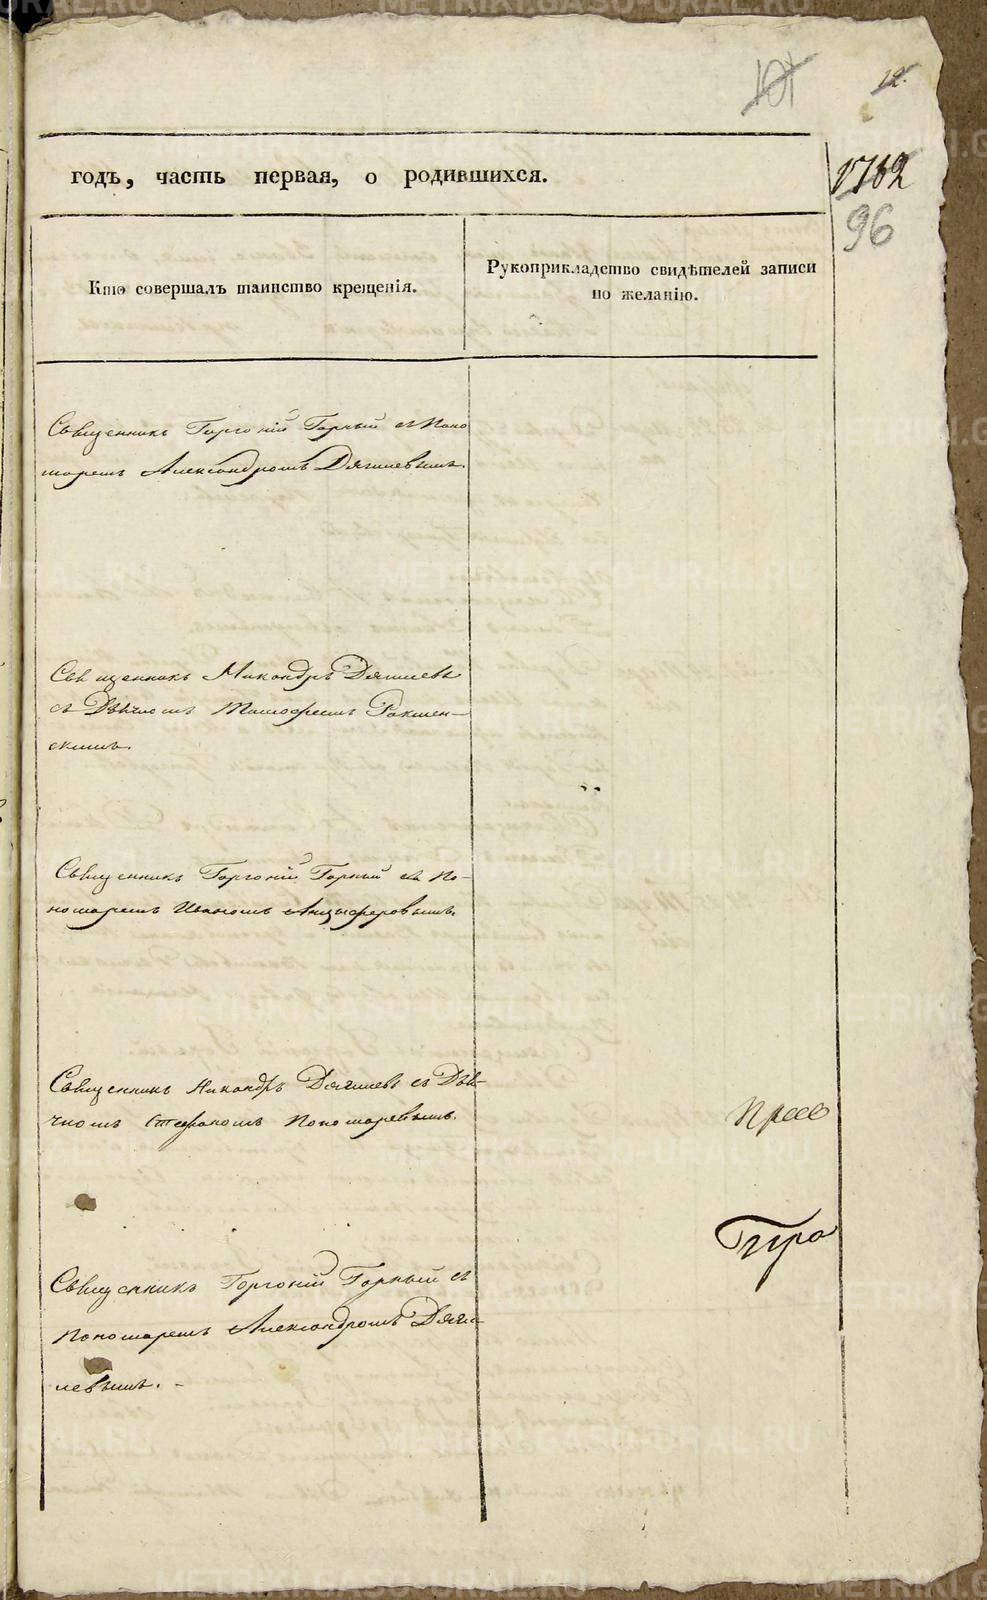 101
12.
годъ, часть первая, о родившихся.
1782
96
Кто совершалъ таинство крещенія.
Рукоприкладство свидѣтелей записи
по желанію.
Священникъ Горгоній Горный съ Поно
маремъ Александромъ Дягилевымъ.
Священникъ Никандръ Дягилевъ
съ Дьячкомъ
скимъ.
Священникъ Горгоній Горный съ По-
номаремъ Иваномъ Анцыферовымъ.
Священникъ Никандръ Дягилевъ съ Дья-
чкомъ Стефаномъ Пономаревымъ.
Священникъ Горгоній Горный съ
Пономаремъ Александромъ Дяги
левымъ. -
METRIKI.GASO-URAL.RU